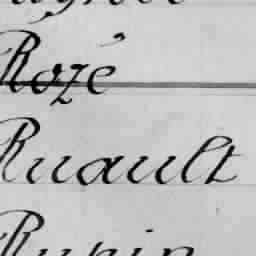 Rozé
Ruault
Rupin